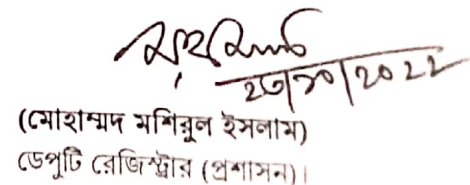 ২৩/১০/২০২২
(মোহাম্মদ মশিরুল ইসলাম)
ডেপুটি রেজিস্ট্রার (প্রশাসন)।